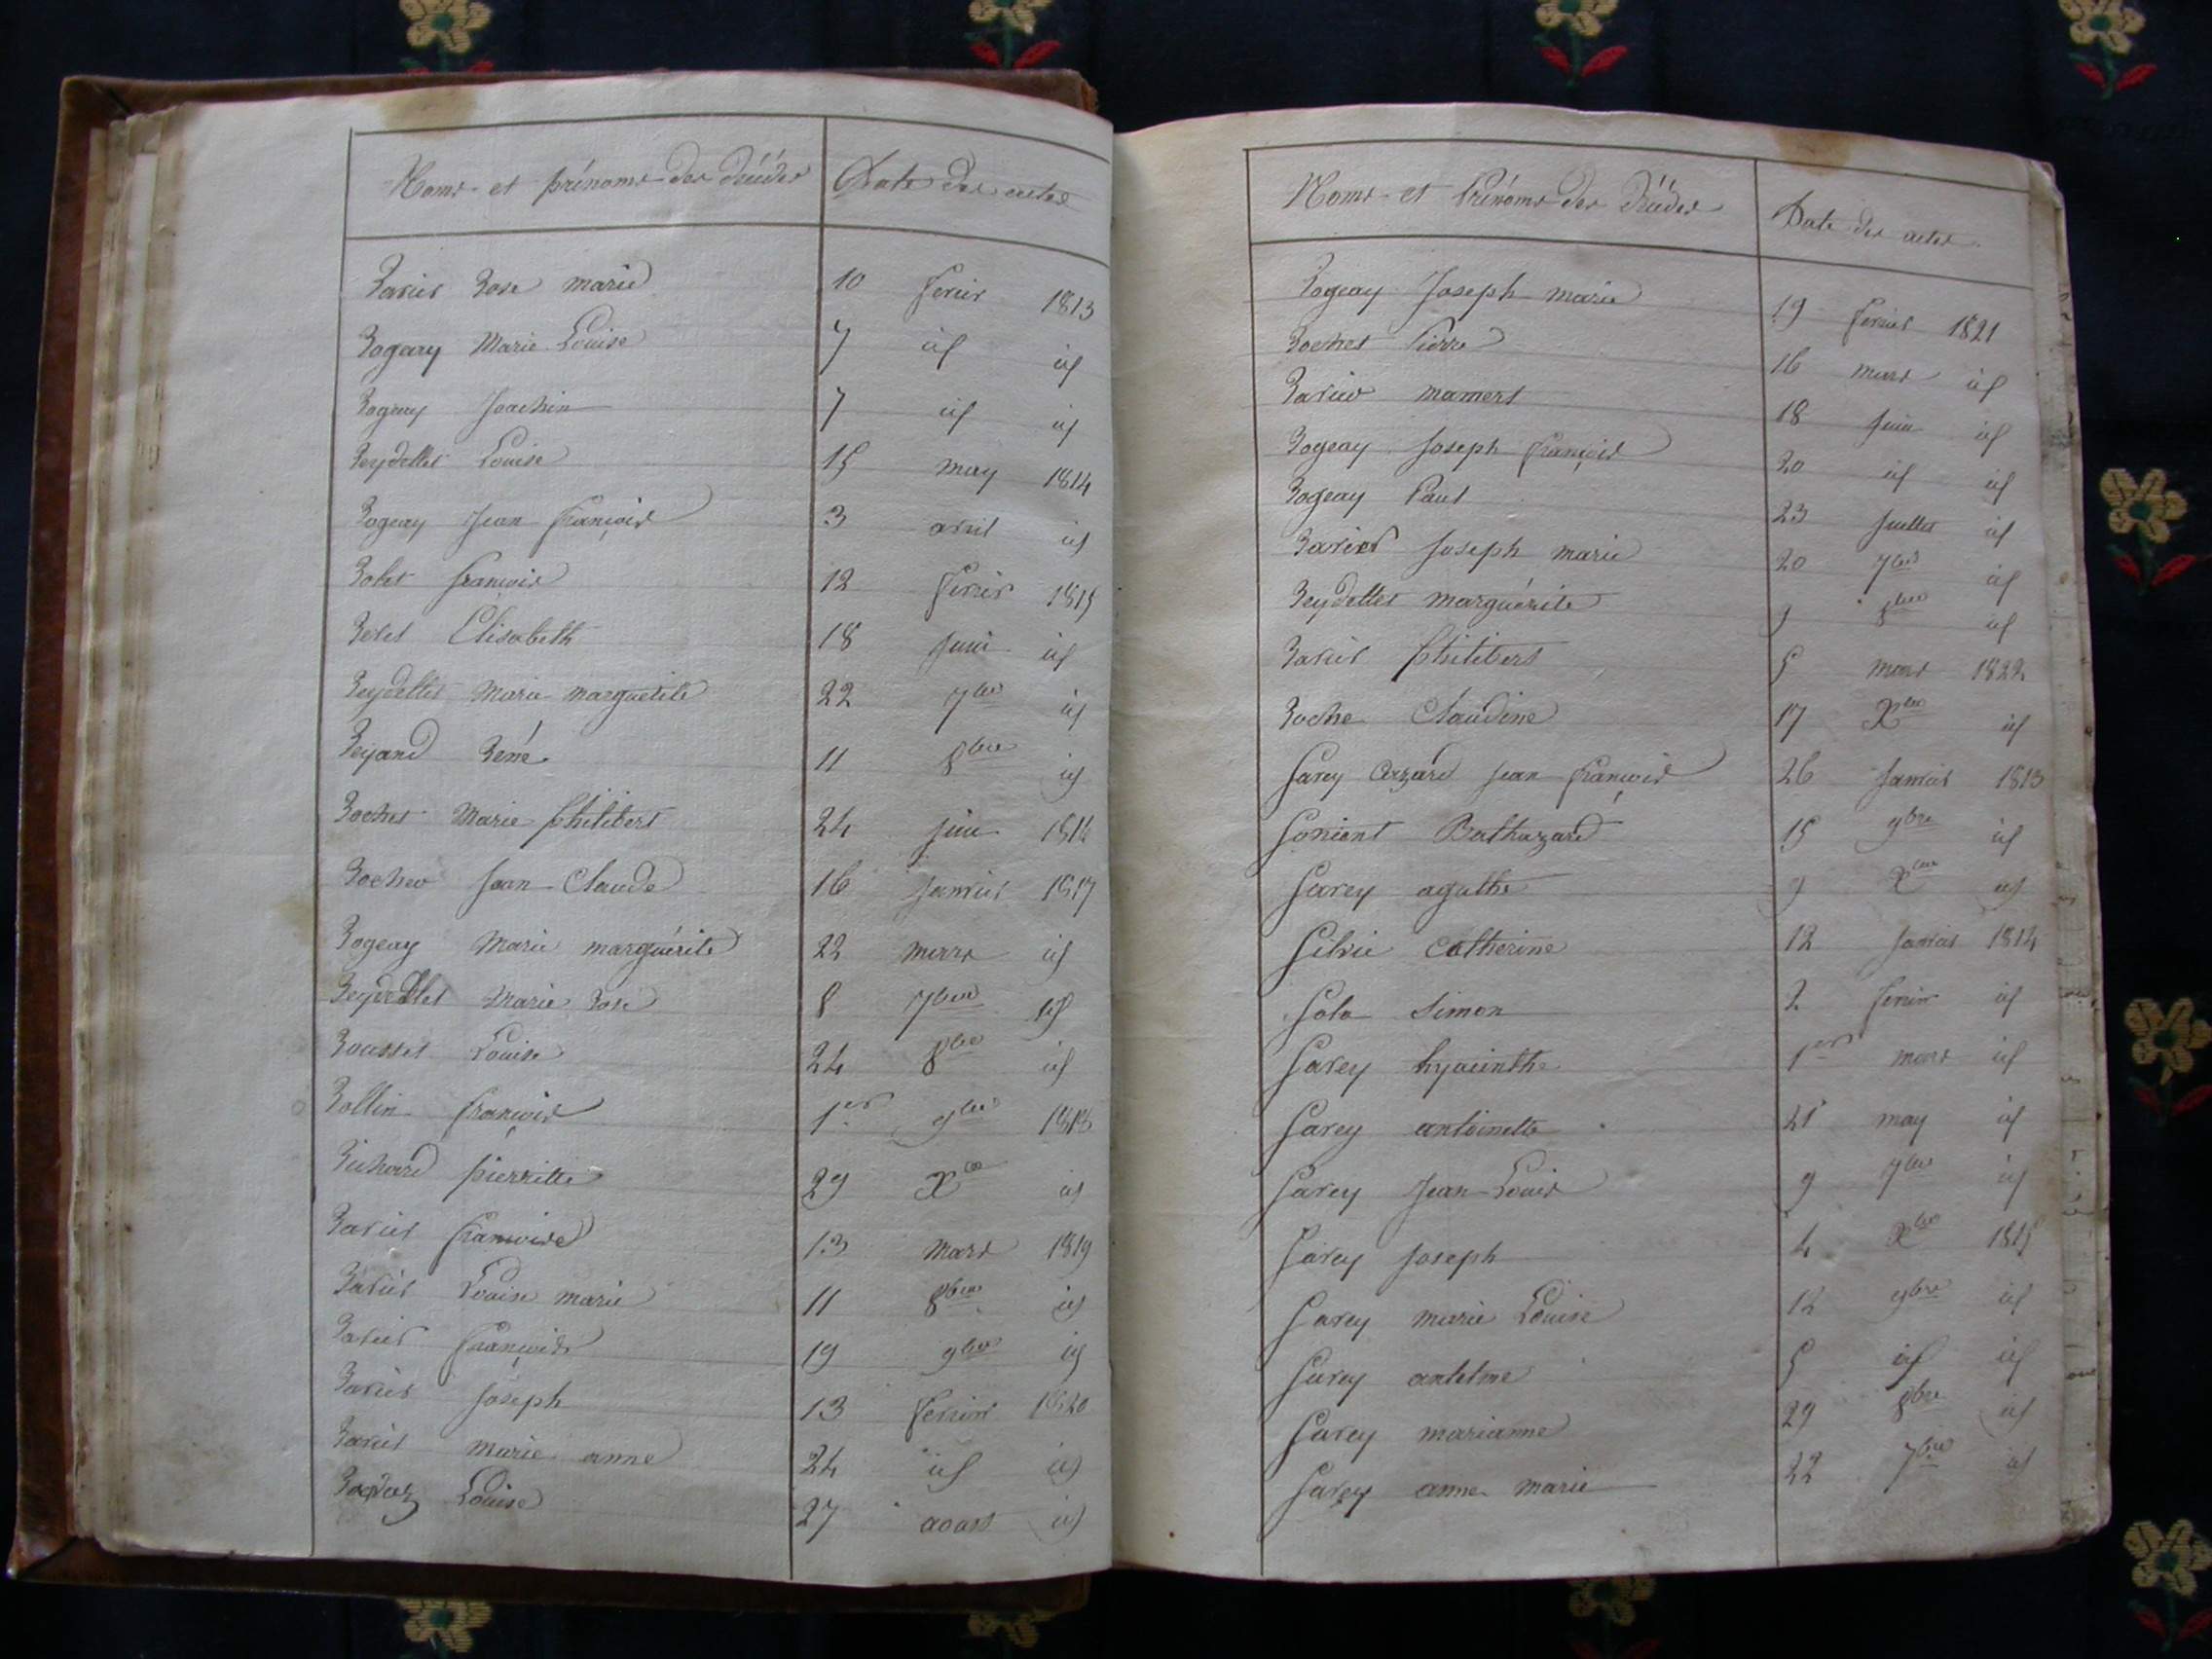 Noms et prénoms des décédés Date des actes
Ravier Rose marie 10 fevrier 1813
Rogeay Marie Louise 7 id id
Rogeay Joachin 7 id id
Reydellet Louise 15 may 1814
Rogeay Jean françois 3 avril id
Robet françois 12 fevrier 1815
Revet Elisabeth 18 juin id
Reydellet Marie marguerite 22 7bre id
Reyand Réné 11 8bre id
Rochet Marie philibert 24 juin 1816
Rochet Jean Claude 16 janvier 1817
Rogeay Marie marguérite 22 mars id
Reydellet Marie Rose 8 7bre id
Rousset Louise 24 8bre id
Rollin françois 1er 9bre 1818
Richard pierrette 29 Xbre id
Ravier françoise 13 mars 1819
Ravier Louise marie 11 8bre id
Ravier françois 19 9bre id
Ravier Joseph 13 fevrier 1820
Ravier marie anne 24 id id
Louise 27 aoust id
Noms et Prénoms des Décédés Date des actes
Rogeay Joseph marie 19 fevrier 1821
Rochet Pierre 16 mars id
Ravier mamert 18 juin id
Rogeay Joseph françois 20 id id
Rogeay Paul 23 juillet id
Ravier Joseph marie 20 7bre id
Reydellet marguérite 9 8bre id
Ravier philibert 5 mars 1822
Roche Claudine 17 Xbre id
Savey Cézard jean françois 26 janvier 1813
Sonient Balthazard 15 9bre id
Savey agathe 9 Xbre id
Silvie Catherine 12 janvier 1814
Sola Simon 2 fevrier id
Savey hyacinthe 1er mars id
Savey antoinette 21 may id
Savey Jean Louis 9 7bre id
Savey Joseph 4 Xbre 1815
Savey marie Louise 12 9bre id
Savey antelme 5 id id
Savey marianne 29 8bre id
Savey anne marie 22 7bre id